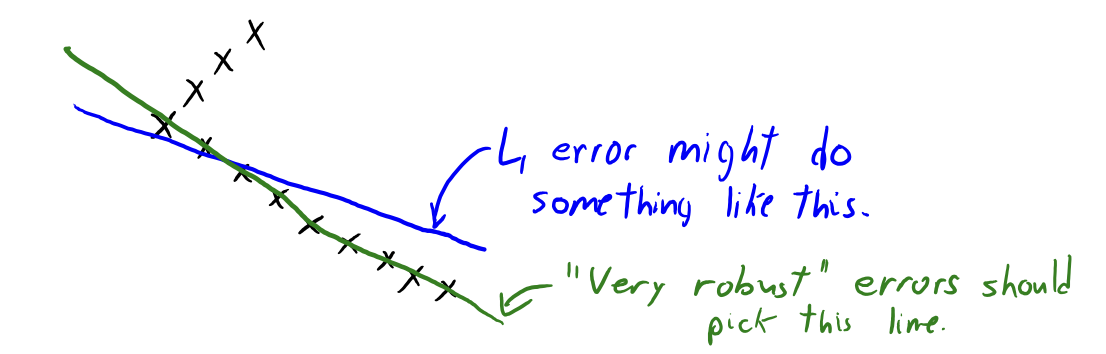 L₁ error might do
something like this.
"Very robust" errors should
pick this line.